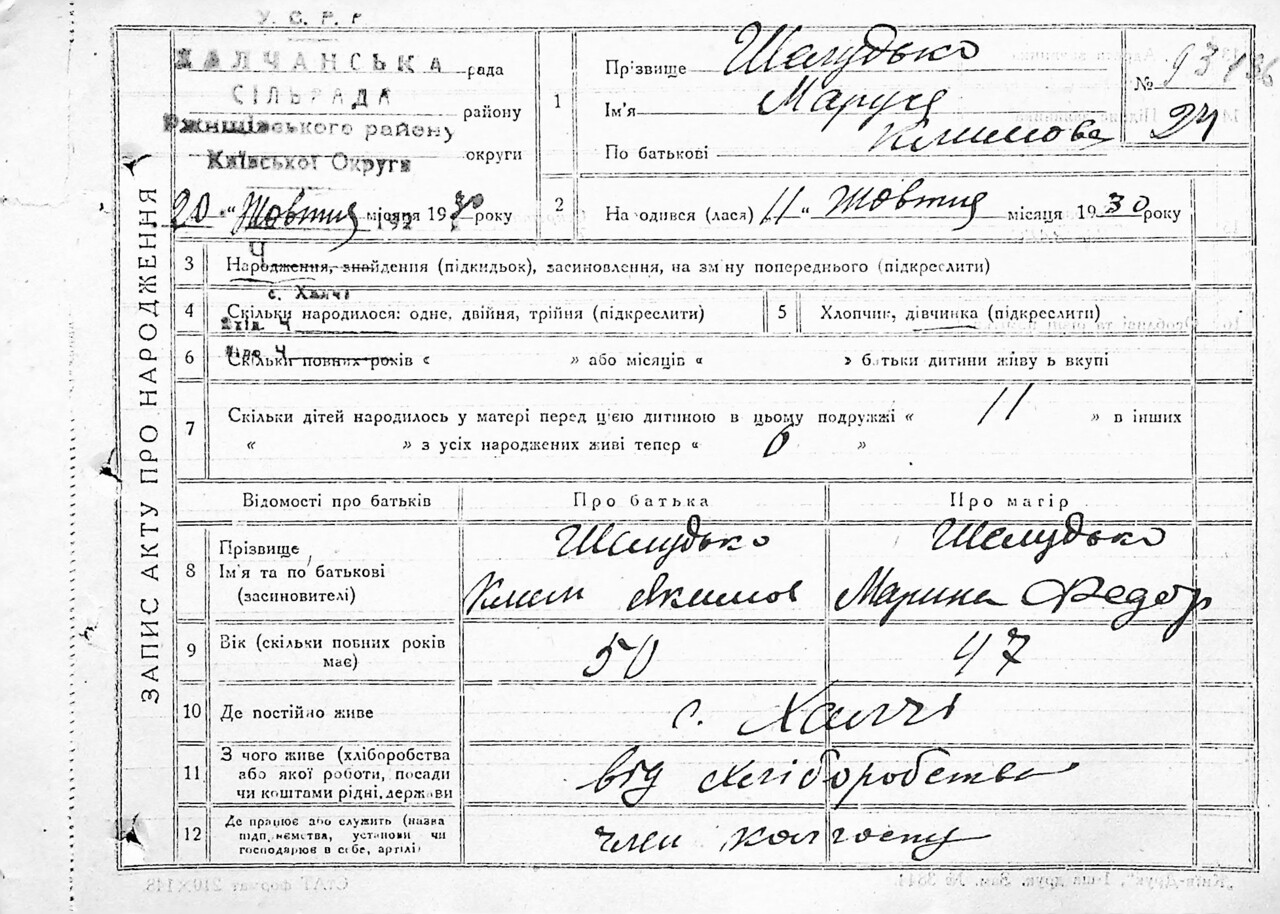 У. С. Р. Р
ХАЛЧАНСЬКА рада
СІЛЬРАДА району
Ржищівського району
Київської Округи округи
20 „ Жовтня місяця 1930 року
1 Прізвище Шелудько
Ім'я Маруся
По батькові Климова
№ 93486
24
2 На одився (лася) 11 „ Жовтня місяця 1930 року
ЗАПИС АКТУ ПРО НАРОДЖЕННЯ
3 Народження, знайдення (підкидьок), засиновлення, на зм ну попереднього (підкреслити)
с. Халчі
4 Скільки народилося: одне, двійня, трійня (підкреслити)
5 Хлопчик, дівчинка (підкреслити)
6 Скільки повних років « » або місяців « » батьки дитини живу ь вкупі
7 Скільки дітей народилось у матері перед ц'єю дитиною в цьому подружжі « 11 » в інших
« » з усіх народжених живі тепер « 6 »
Відомості про батьків Про батька Про матір
8 Прізвище, Ім'я та по батькові (засиновителі)
Шелудько Клим Якимов
Шелудько Марина Федор
9 Вік (скільки повних років має) 50 47
10 Де постійно живе с. Халчі
11 З чого живе (хліборобства
або якої роботи, посади
чи коштами рідні, держави
від хліборобства
12 Де працює або служить (назва
підп. нємства, установи чи
господарює в себе, артілі)
член колгоспу
СтАТ формат 210×148
„Київ-Друк", 1-ша друк. Зам. № 3844.